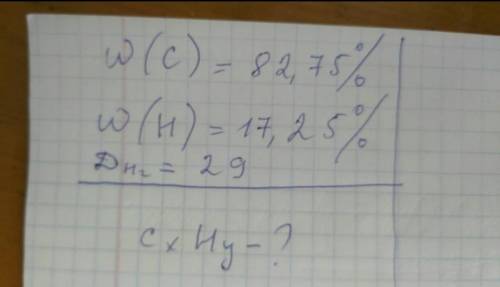 W(C) = 82,75%
W(H) = 17,25%
Dн₂ = 29
CxHy - ?